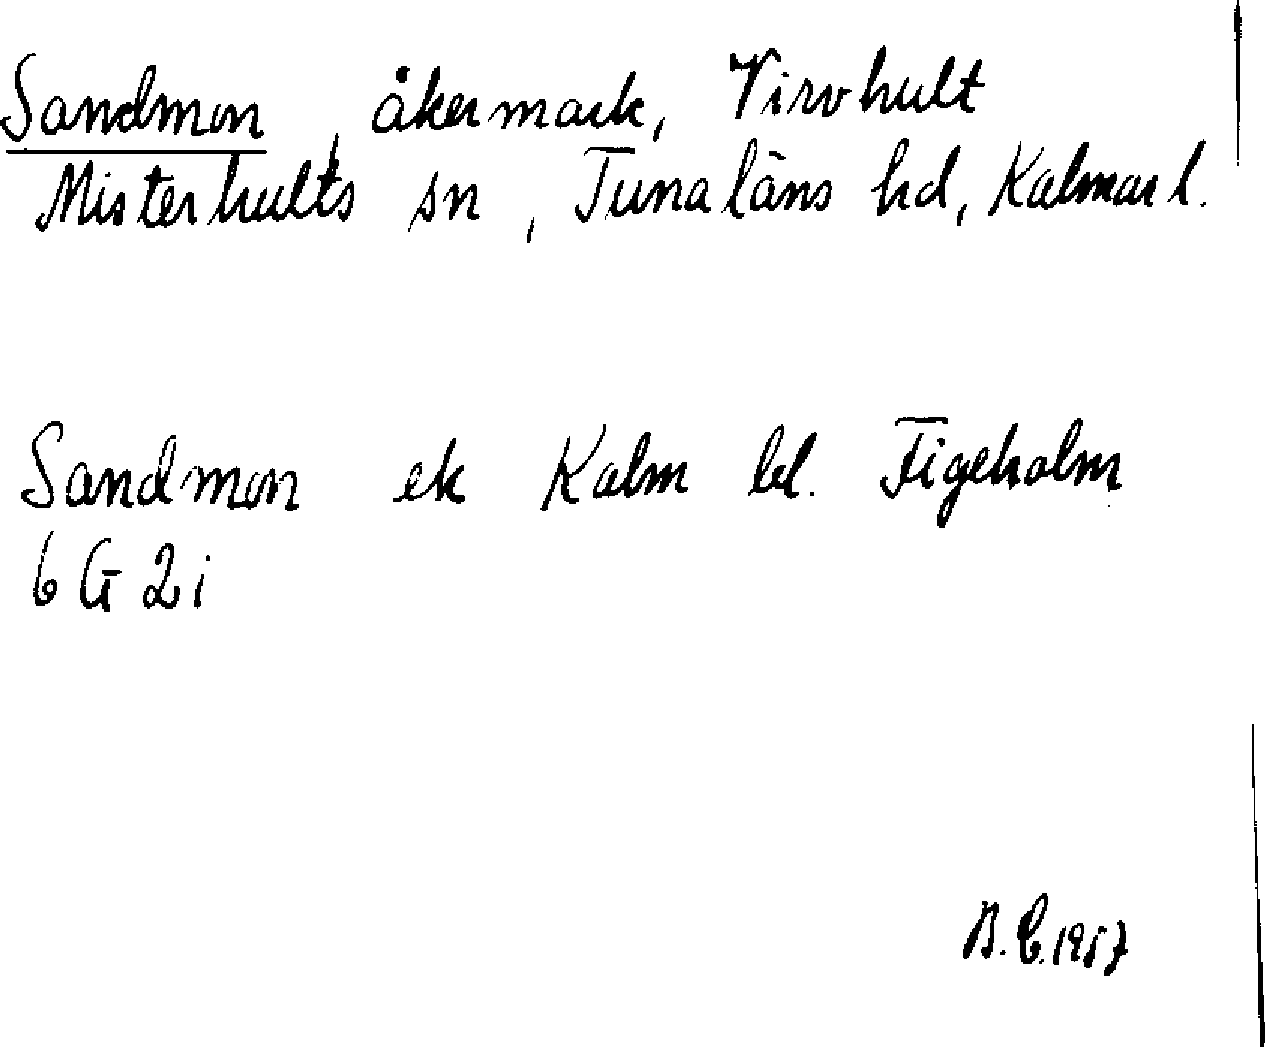 Sandmon, åkermark, Virvhult
Misterhults sn, Tunaläns hd, Kalmar l.
Sandmon ek Kalm bl. Figeholm
6 G 2i
B.C. 1957